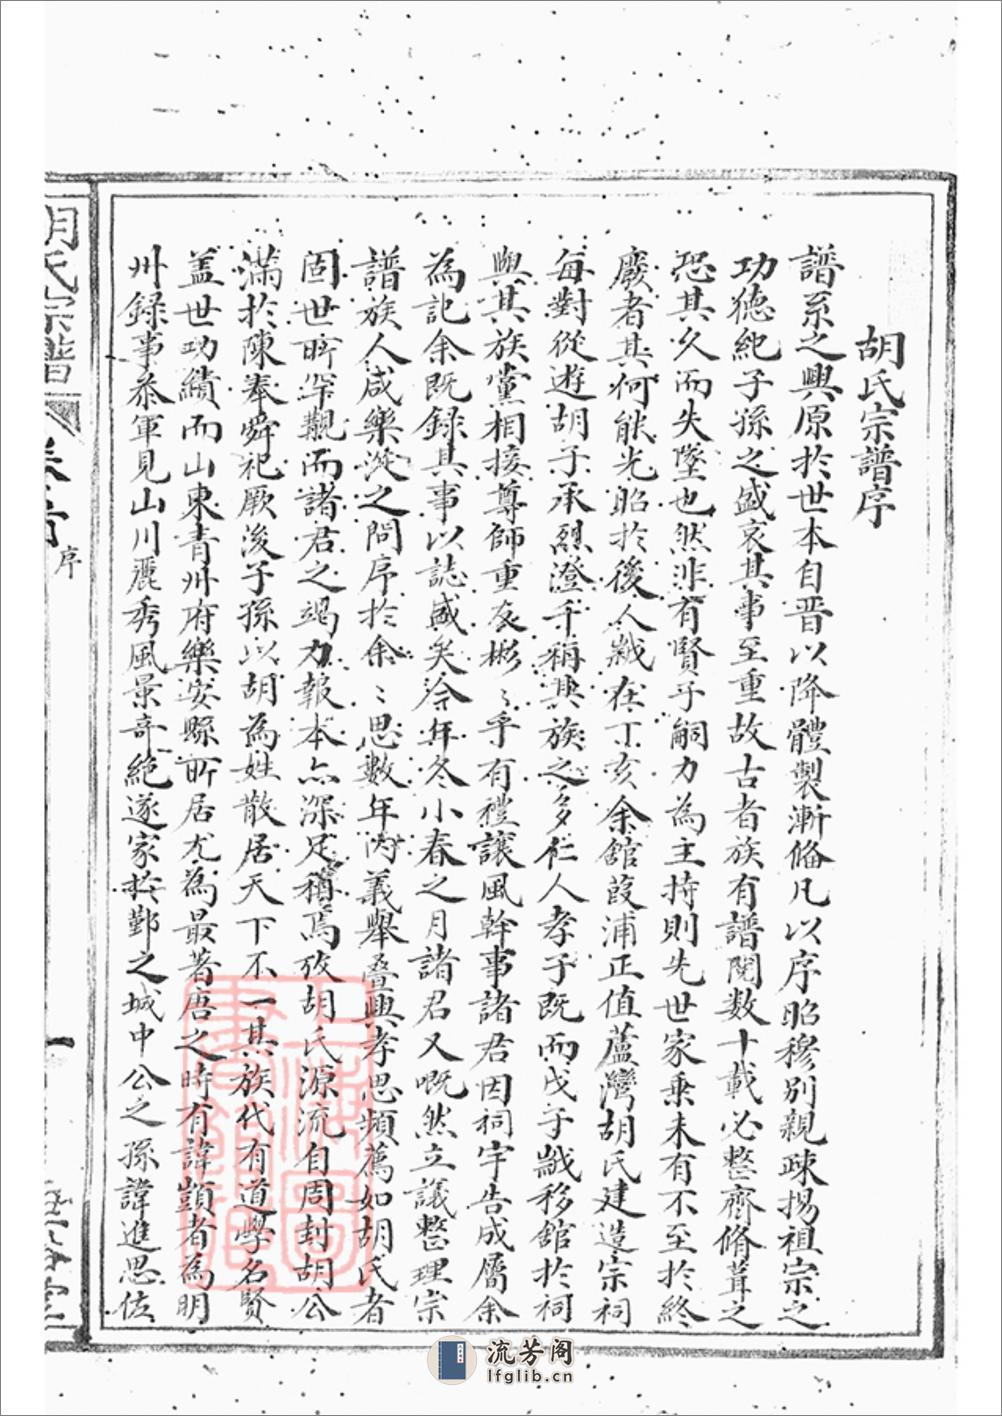 胡氏宗譜序
譜系之興原於世本自晋以降體製漸俻凡以序昭穆别親疎揚祖宗之
功德紀子孫之盛衰其事至重故古者族有譜閱数十載必整齊脩葺之
恐其久而失墜也然非有賢子嗣力為主持則先世家乗未有不至於終
廢者其何能光昭於後人㦲在丁亥余館葭浦正值蘆灣胡氏建造宗祠
每對從逰胡子承烈澄千稱其族之多仁人孝子既而戊子㦲移舘於祠
與其族黨相接尊師重友彬〻乎有禮讓風幹事諸君因祠宇告成屬余
為記余既録其事以誌盛矣今年冬小春之月諸君又嘅然立議整理宗
譜族人咸樂從之問序於余〻思數年内義舉叠興孝思頻薦如胡氏者
固世所罕覯而諸君之竭力報本亦深足稱焉攷胡氏源流自周封胡公
滿於陳奉舜祀厥後子孫以胡為姓散居天下不一其族代有道學名賢
盖世功績而山東青州府樂安縣所居尤為最著唐之時有諱顗者為明
州録事叅軍見山川麗秀風景奇絶遂家於鄞之城中公之孫諱進思佐
胡氏宗譜
卷首
序
一
上海圖書館藏
流芳阁
lfglib.cn